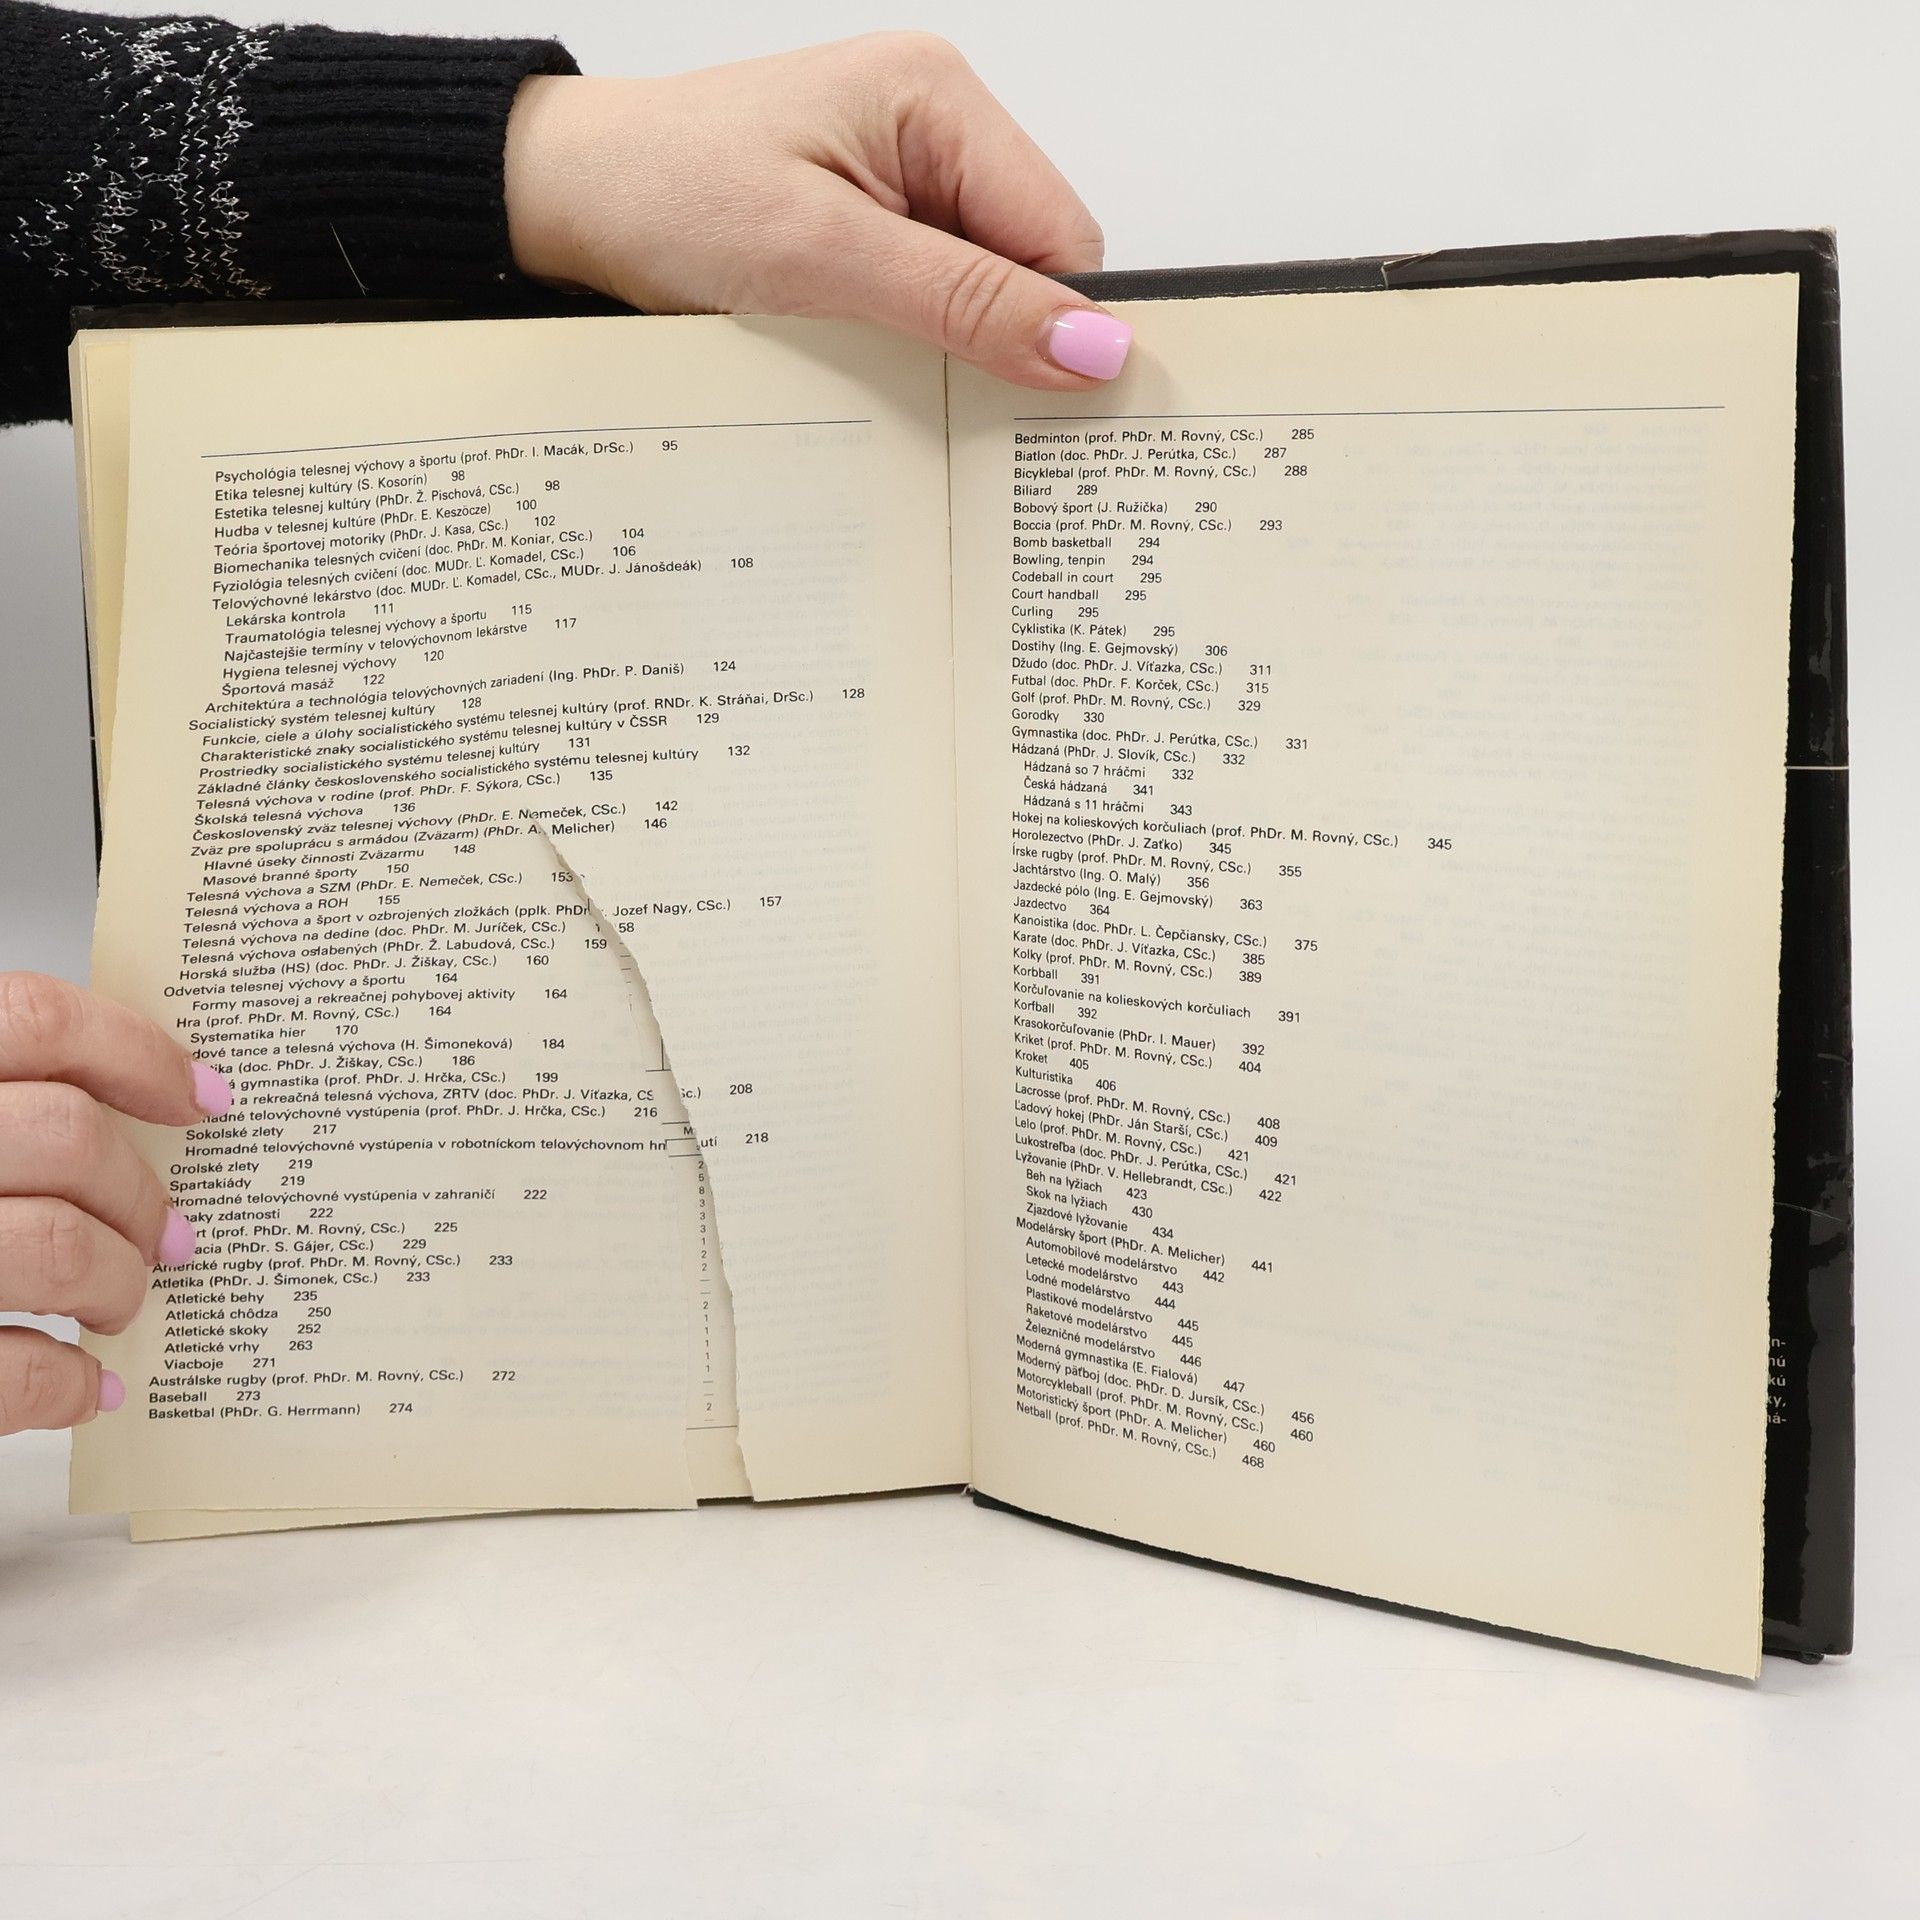 Psychológia telesnej výchovy a športu (prof. PhDr. I. Macák, DrSc.) 95
Etika telesnej kultúry (S. Kosorín) 98
Estetika telesnej kultúry (PhDr. Ž. Pischová, CSc.) 98
Hudba v telesnej kultúre (PhDr. E. Keszöcze) 100
Teória športovej motoriky (PhDr. J. Kasa, CSc.) 102
Biomechanika telesných cvičení (doc. PhDr. M. Koniar, CSc.) 104
Fyziológia telesných cvičení (doc. MUDr. Ľ. Komadel, CSc.) 106
Telovýchovné lekárstvo (doc. MUDr. Ľ. Komadel, CSc., MUDr. J. Jánošdeák) 108
Lekárska kontrola 111
Traumatológia telesnej výchovy a športu 115
Najčastejšie termíny v telovýchovnom lekárstve 117
Hygiena telesnej výchovy 120
Športová masáž 122
Architektúra a technológia telovýchovných zariadení (Ing. PhDr. P. Daniš) 124
Socialistický systém telesnej kultúry 128
Funkcie, ciele a úlohy socialistického systému telesnej kultúry (prof. RNDr. K. Stráňai, DrSc.) 128
Charakteristické znaky socialistického systému telesnej kultúry v ČSSR 129
Prostriedky socialistického systému telesnej kultúry 131
Základné články československého socialistického systému telesnej kultúry 132
Telesná výchova v rodine (prof. PhDr. F. Sýkora, CSc.) 135
Školská telesná výchova 136
Československý zväz telesnej výchovy (PhDr. E. Nemeček, CSc.) 142
Zväz pre spoluprácu s armádou (Zväzarm) (PhDr. A. Melicher) 146
Hlavné úseky činnosti Zväzarmu 148
Masové branné športy 150
Telesná výchova a SZM (PhDr. E. Nemeček, CSc.) 153
Telesná výchova a ROH 155
Telesná výchova a šport v ozbrojených zložkách (pplk. PhDr. Jozef Nagy, CSc.) 157
Telesná výchova na dedine (doc. PhDr. M. Juríček, CSc.) 158
Telesná výchova oslabených (PhDr. Ž. Labudová, CSc.) 159
Horská služba (HS) (doc. PhDr. J. Žiškay, CSc.) 160
Odvetvia telesnej výchovy a športu 164
Formy masovej a rekreačnej pohybovej aktivity 164
Hra (prof. PhDr. M. Rovný, CSc.) 164
Systematika hier 170
dové tance a telesná výchova (H. Šimoneková) 184
tika (doc. PhDr. J. Žiškay, CSc.) 186
á gymnastika (prof. PhDr. J. Hrčka, CSc.) 199
á a rekreačná telesná výchova, ZRTV (doc. PhDr. J. Víťazka, CS Sc.) 208
nadné telovýchovné vystúpenia (prof. PhDr. J. Hrčka, CSc.) 216
Sokolské zlety 217
Hromadné telovýchovné vystúpenia v robotníckom telovýchovnom hn utí 218
Orolské zlety 219
Spartakiády 219
Hromadné telovýchovné vystúpenia v zahraničí 222
naky zdatnosti 222
rt (prof. PhDr. M. Rovný, CSc.) 225
acia (PhDr. S. Gájer, CSc.) 229
Americké rugby (prof. PhDr. M. Rovný, CSc.) 233
Atletika (PhDr. J. Šimonek, CSc.) 233
Atletické behy 235
Atletická chôdza 250
Atletické skoky 252
Atletické vrhy 263
Viacboje 271
Austrálske rugby (prof. PhDr. M. Rovný, CSc.) 272
Baseball 273
Basketbal (PhDr. G. Herrmann) 274
M
2
5
8
3
3
3
1
2
2
—
2
1
1
1
1
1
—
—
2
—
Bedminton (prof. PhDr. M. Rovný, CSc.) 285
Biatlon (doc. PhDr. J. Perútka, CSc.) 287
Bicyklebal (prof. PhDr. M. Rovný, CSc.) 288
Biliard 289
Bobový šport (J. Ružička) 290
Boccia (prof. PhDr. M. Rovný, CSc.) 293
Bomb basketball 294
Bowling, tenpin 294
Codeball in court 295
Court handball 295
Curling 295
Cyklistika (K. Pátek) 295
Dostihy (Ing. E. Gejmovský) 306
Džudo (doc. PhDr. J. Víťazka, CSc.) 311
Futbal (doc. PhDr. F. Korček, CSc.) 315
Golf (prof. PhDr. M. Rovný, CSc.) 329
Gorodky 330
Gymnastika (doc. PhDr. J. Perútka, CSc.) 331
Hádzaná (PhDr. J. Slovík, CSc.) 332
Hádzaná so 7 hráčmi 332
Česká hádzaná 341
Hádzaná s 11 hráčmi 343
Hokej na kolieskových korčuliach (prof. PhDr. M. Rovný, CSc.) 345
Horolezectvo (PhDr. J. Zaťko) 345
Írske rugby (prof. PhDr. M. Rovný, CSc.) 355
Jachtárstvo (Ing. O. Malý) 356
Jazdecké pólo (Ing. E. Gejmovský) 363
Jazdectvo 364
Kanoistika (doc. PhDr. L. Čepčiansky, CSc.) 375
Karate (doc. PhDr. J. Víťazka, CSc.) 385
Kolky (prof. PhDr. M. Rovný, CSc.) 389
Korbball 391
Korčuľovanie na kolieskových korčuliach 391
Korfball 392
Krasokorčuľovanie (PhDr. I. Mauer) 392
Kriket (prof. PhDr. M. Rovný, CSc.) 404
Kroket 405
Kulturistika 406
Lacrosse (prof. PhDr. M. Rovný, CSc.) 408
Ľadový hokej (PhDr. Ján Starší, CSc.) 409
Lelo (prof. PhDr. M. Rovný, CSc.) 421
Lukostreľba (doc. PhDr. J. Perútka, CSc.) 421
Lyžovanie (PhDr. V. Hellebrandt, CSc.) 422
Beh na lyžiach 423
Skok na lyžiach 430
Zjazdové lyžovanie 434
Modelársky šport (PhDr. A. Melicher) 441
Automobilové modelárstvo 442
Letecké modelárstvo 443
Lodné modelárstvo 444
Plastikové modelárstvo 445
Raketové modelárstvo 445
Železničné modelárstvo 446
Moderná gymnastika (E. Fialová) 447
Moderný päťboj (doc. PhDr. D. Jursík, CSc.) 456
Motorcykleball (prof. PhDr. M. Rovný, CSc.) 460
Motoristický šport (PhDr. A. Melicher) 460
Netball (prof. PhDr. M. Rovný, CSc.) 468
n-
nú
kú
ky,
ná-